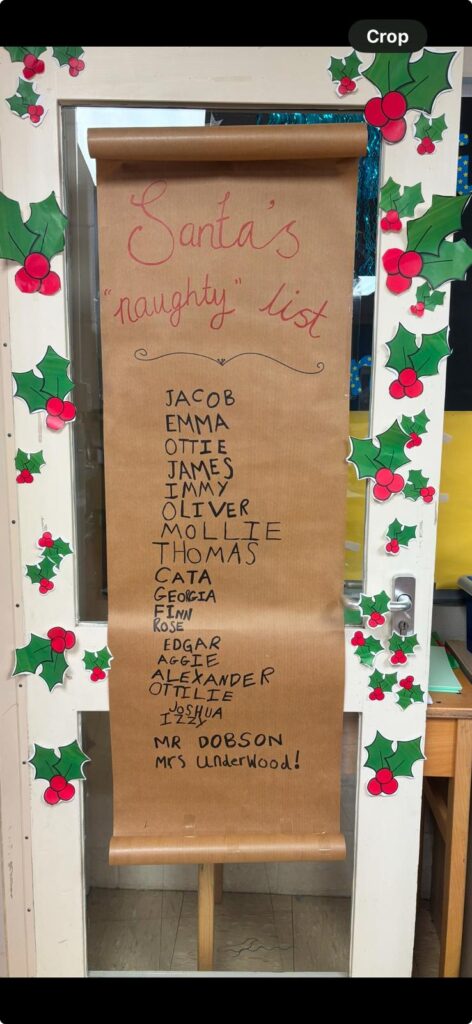 Crop
Santa's
"naughty" list
JACOB
EMMA
OTTIE
JAMES
IMMY
OLIVER
MOLLIE
THOMAS
CATA
GEORGIA
FINN
ROSE
EDGAR
AGGIE
ALEXANDER
OTTILIE
JOSHUA
IZZY
MR DOBSON
Mrs UnderWood!